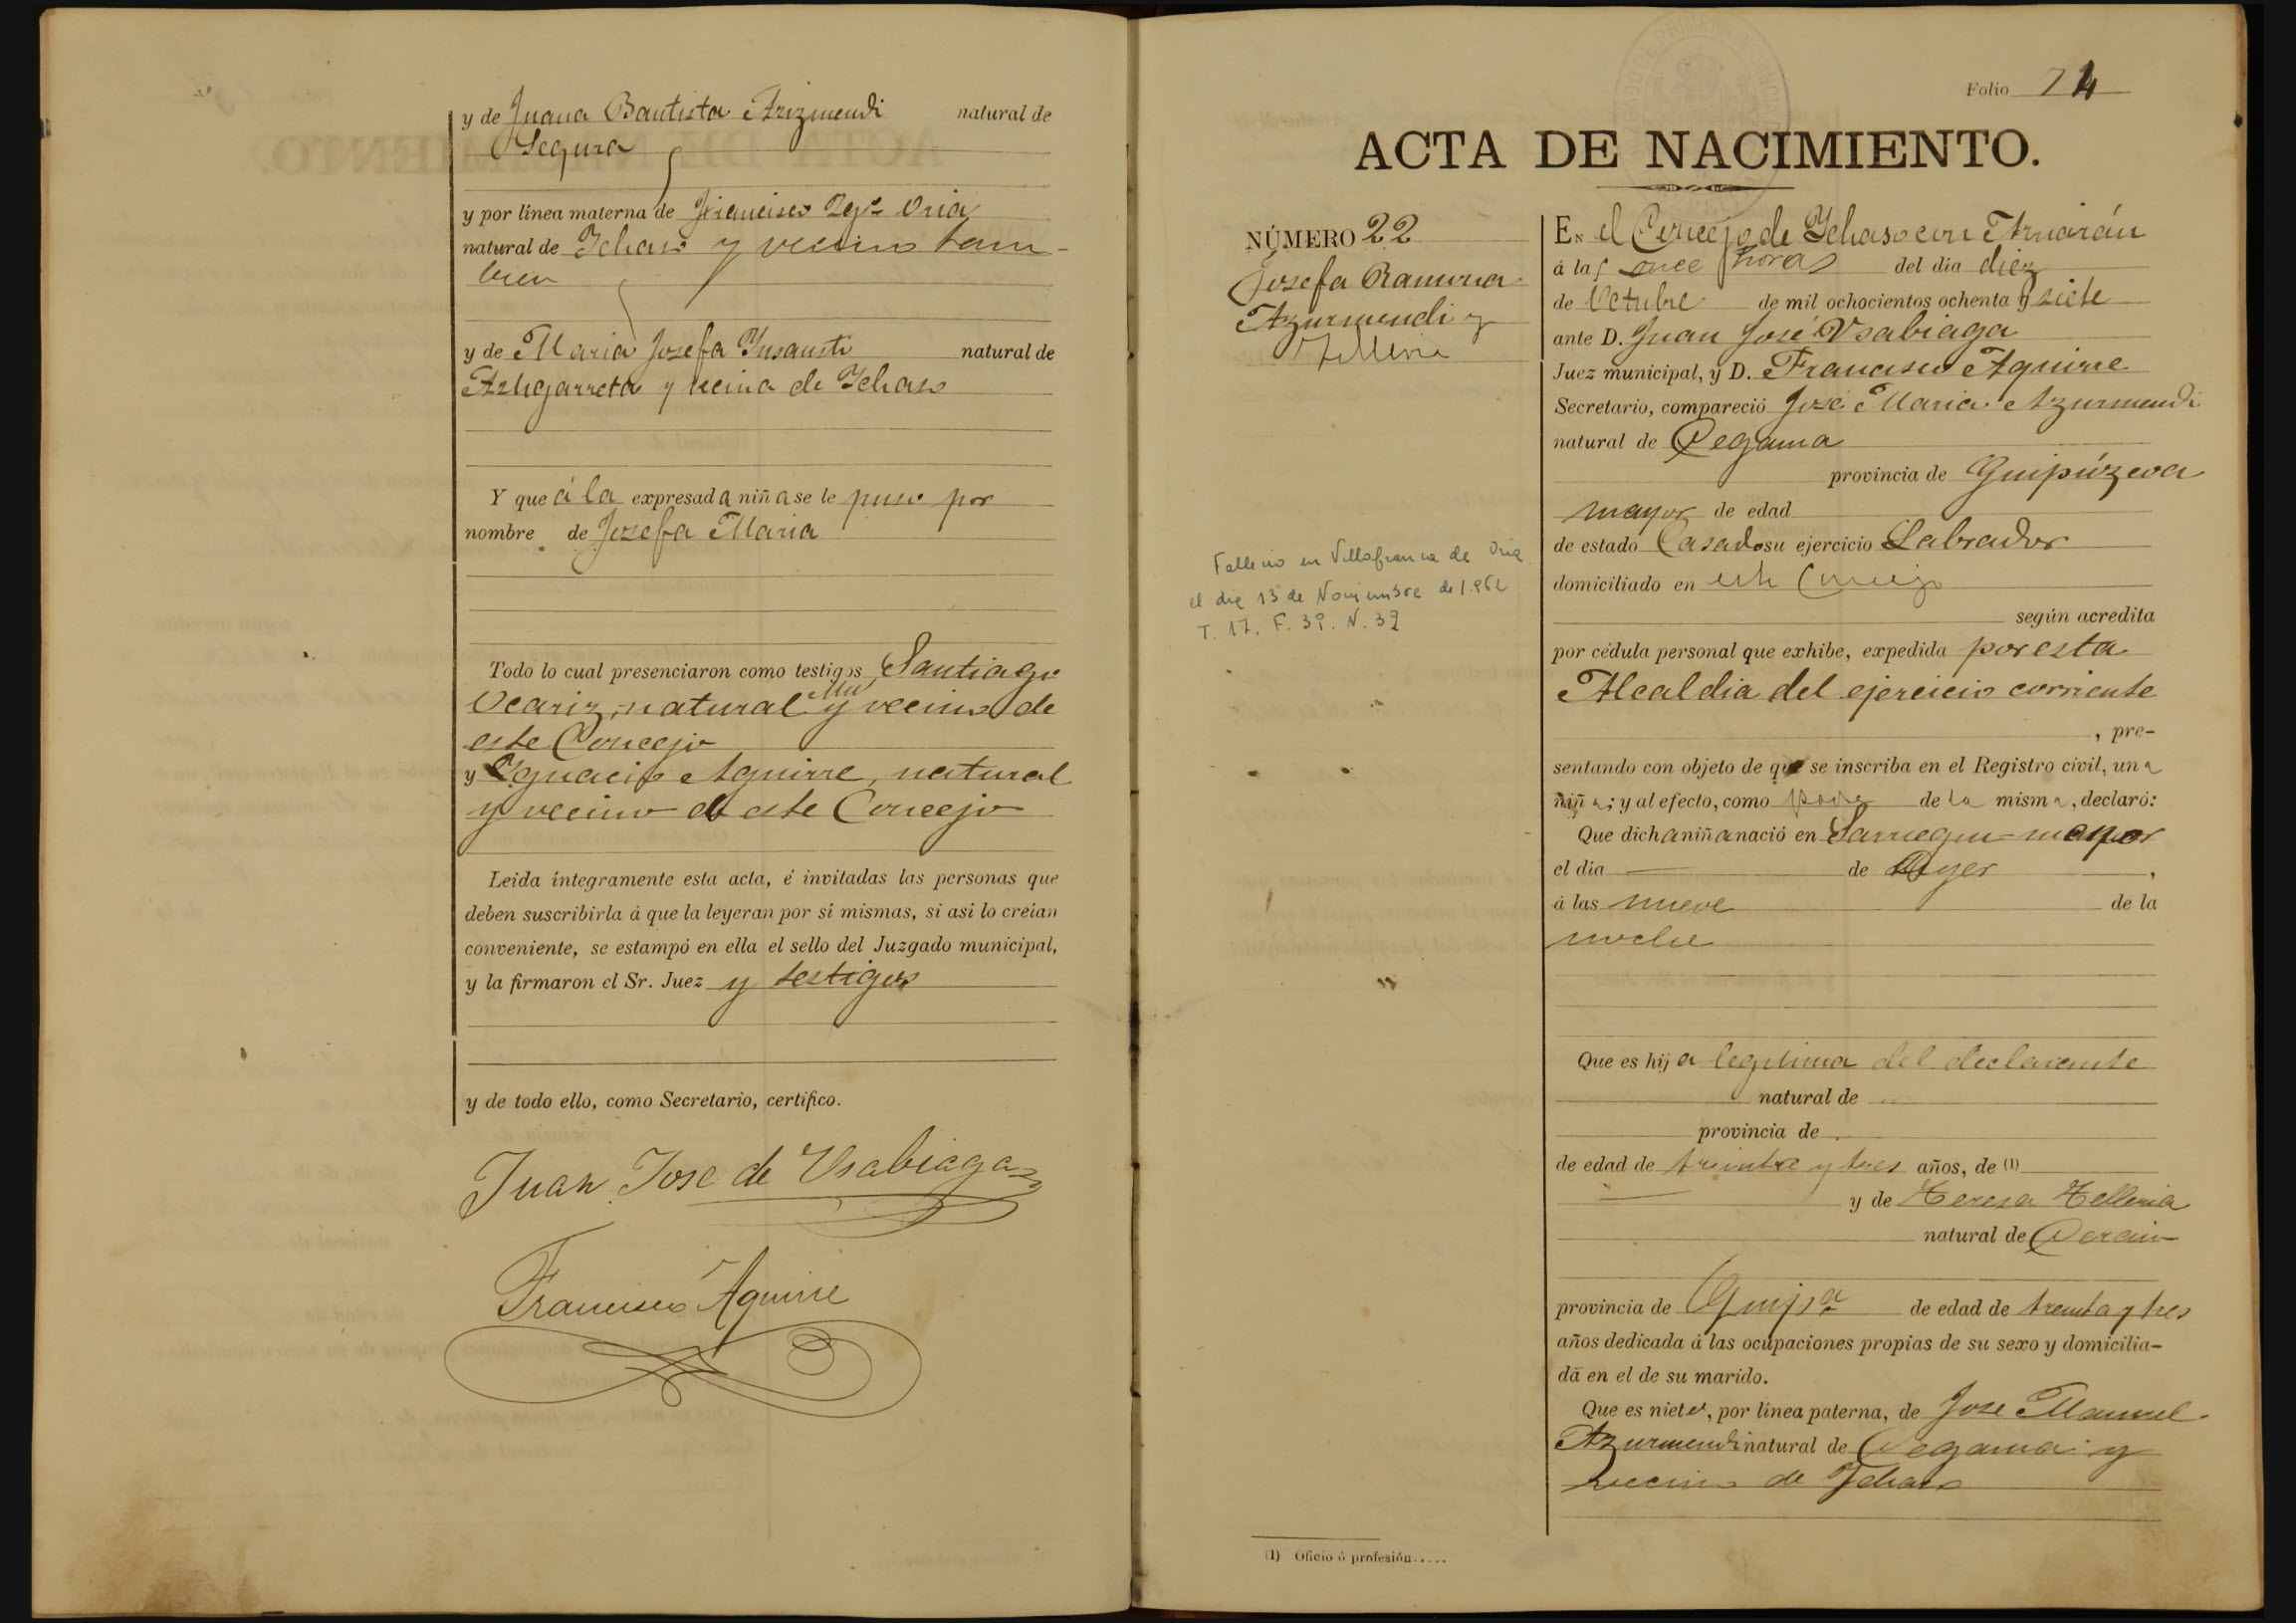 y de Juana Bautista Arizmendi natural de
Segura
y por línea materna de Francisco Igº Oria
natural de Ichaso y vecino tam-
bien
y de Maria Josefa Insausti natural de
Astigarreta y vecina de Ichaso
Y que á la expresada niña se le puso por
nombre de Josefa Maria
Todo lo cual presenciaron como testigos Santiago
Ocariz, natural y vecino de
este Concejo
y Ignacio Aguirre, natural
y vecino de este Concejo
Leida íntegramente esta acta, é invitadas las personas que
deben suscribirla á que la leyeran por sí mismas, si así lo creían
conveniente, se estampó en ella el sello del Juzgado municipal,
y la firmaron el Sr. Juez y testigos
y de todo ello, como Secretario, certifico.
Juan Jose de Usabiaga
Francisco Aguirre
Folio 74
ACTA DE NACIMIENTO.
NÚMERO 22
Josefa Ramona
Azurmendi y
Telleria
Fallecio en Villafranca de Oria
el dia 13 de Noviembre de
T. 17. F. 39. N. 39
EN el Concejo de Ichaso con Arriarán
á las once horas del día diez
de Octubre de mil ochocientos ochenta y siete
ante D. Juan José Usabiaga
Juez municipal, y D. Francisco Aguirre
Secretario, compareció José Maria Azurmendi
natural de Cegama
provincia de Guipúzcoa
mayor de edad
de estado Casado su ejercicio Labrador
domiciliado en este Concejo
según acredita
por cédula personal que exhibe, expedida por esta
Alcaldia del ejercicio corriente
, pre-
sentando con objeto de que se inscriba en el Registro civil, una
niña; y al efecto, como padre de la misma, declaró:
Que dicha niña nació en Sarriegui-mayor
el día — de Ayer,
á las nueve de la
noche
Que es hija legitima del declarante
natural de
provincia de
de edad de treinta y tres años, de (1)
— y de Teresa Telleria
natural de Cerain
provincia de Guipª de edad de treinta y tres
años dedicada á las ocupaciones propias de su sexo y domicilia-
da en el de su marido.
Que es nieta, por línea paterna, de Jose Manuel
Azurmendi natural de Cegama y
vecino de Ichaso
(1) Oficio ó profesión.....